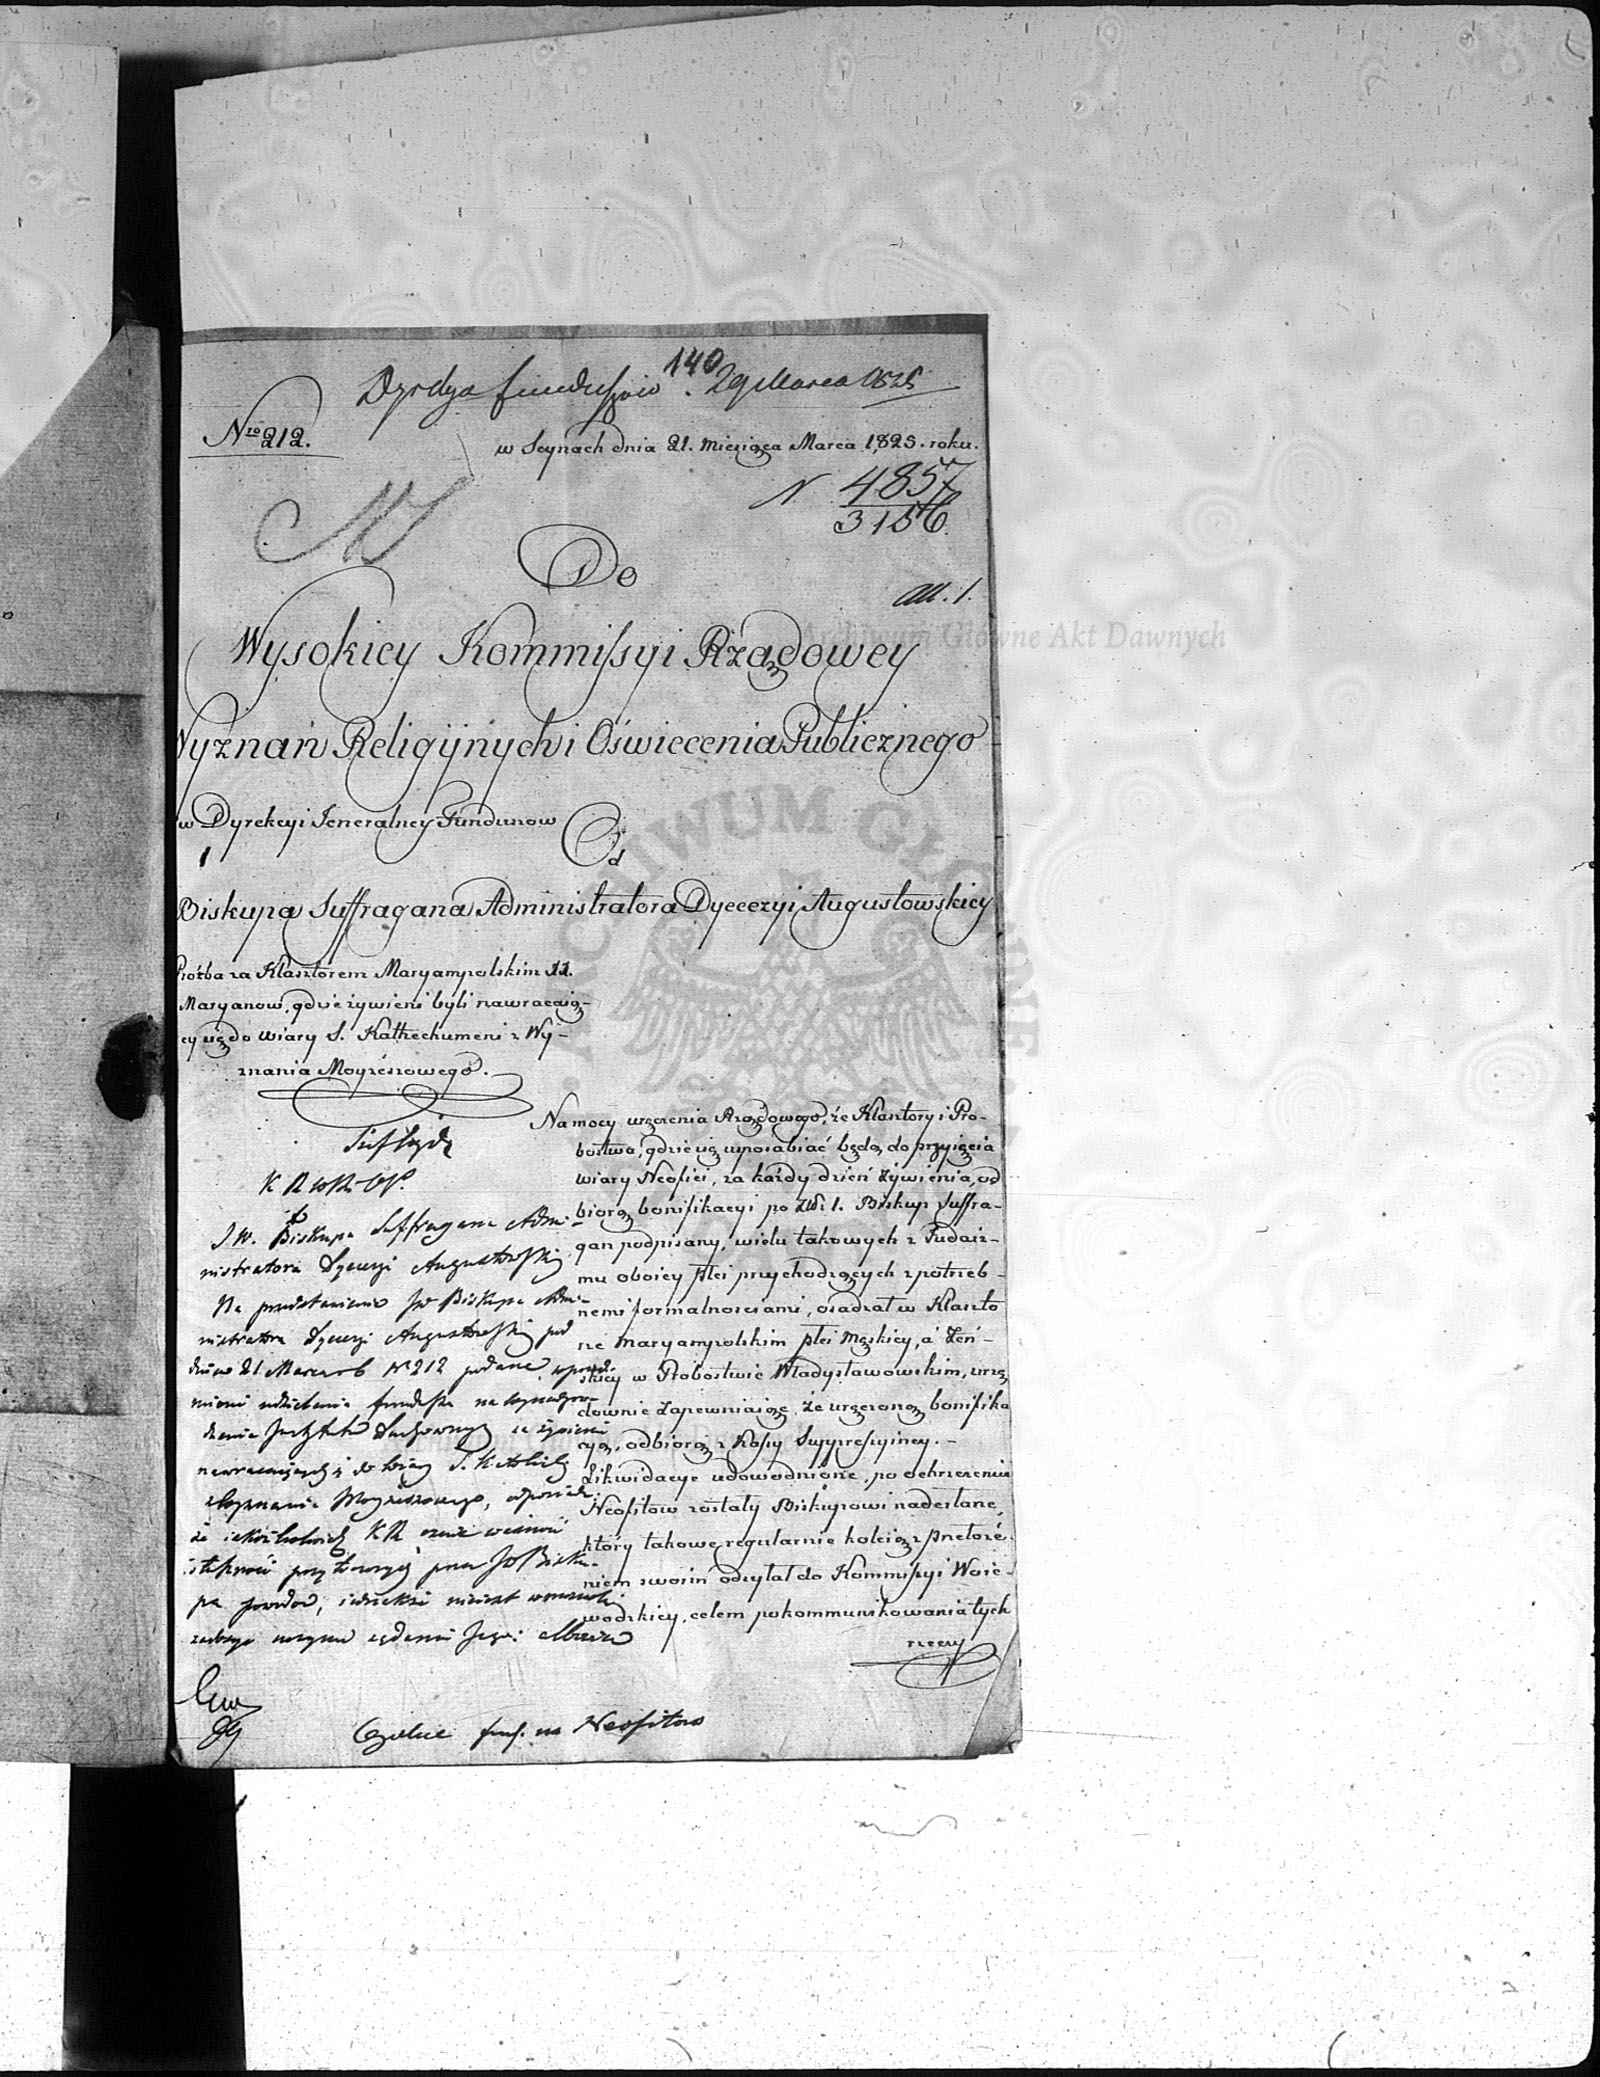 140
Dyrekcya funduszów. 29 Marca 1825
Nro 212.
w Seynach dnia 21. miesiąca Marca 1,825. roku.
N 4857
3156.
Do
all. 1.
Wysokiey Kommissyi Rządowey
Wyznań Religijnych i Oświecenia Publicznego
w Dyrekcyi Jeneralney Funduszow
1
Od
Biskupa Suffragana Administratora Dyecezyi Augustowskiey
Prośba za Klasztorem Maryampolskim XX.
Maryanow, gdzie żywieni byli nawracaią-
cy się do wiary S. Kathechumeni z Wy-
znania Moyżeszowego.
Na mocy urządzenia Rządowego, że Klasztory i Pro-
bostwa, gdzie się usposabiać będą do przyięcia
wiary Neofici, za każdy dzień żywienia, od
biorą bonifikacyi po Złł: 1. Biskup Suffra-
gan podpisany, wielu takowych z Judaiz-
mu oboiey płci przychodzących z potrzeb-
nemi formalnościami, osadzał w Klaszto
rze Maryampolskim płci Męskiey, a Żeń-
skiey w Probostwie Władysławowskim, urzę
downie zapewniaiąc, że urządzoną bonifika
cyą, odbiorą z Kassy Suppressyiney. -
Likwidacye udowodnione, po ochrzczeniu
Neofitow zostały Biskupowi nadesłane,
który takowe regularnie koleią z przełoże-
niem swoim odsyłał do Kommissyi Woie-
wodzkiey, celem pokommunikowania tych
rzeczy
K R W R i O P.
J. W. Biskupa Suffragana Admi-
nistratora Dyecezyi Augustowskiey
Na przedstawienie JW Biskupa Admi-
nistratora Dyecezyi Augustowskiey pod
dniem 21 Marca r b N 212 podane, w przed-
miocie udzielenia funduszu na wynagro-
dzenie Duchownych za żywienie
nawracaiących się do wiary S. Katolickiey
z Wyznania Moyżeszowego, odpowiada:
że iakkolwiek K R
przytoczonych przez JW Bisku-
pa powodów, iednakże nie iest w możności
zadosyć uczynić żądaniu Jego:
fund. na Neofitow